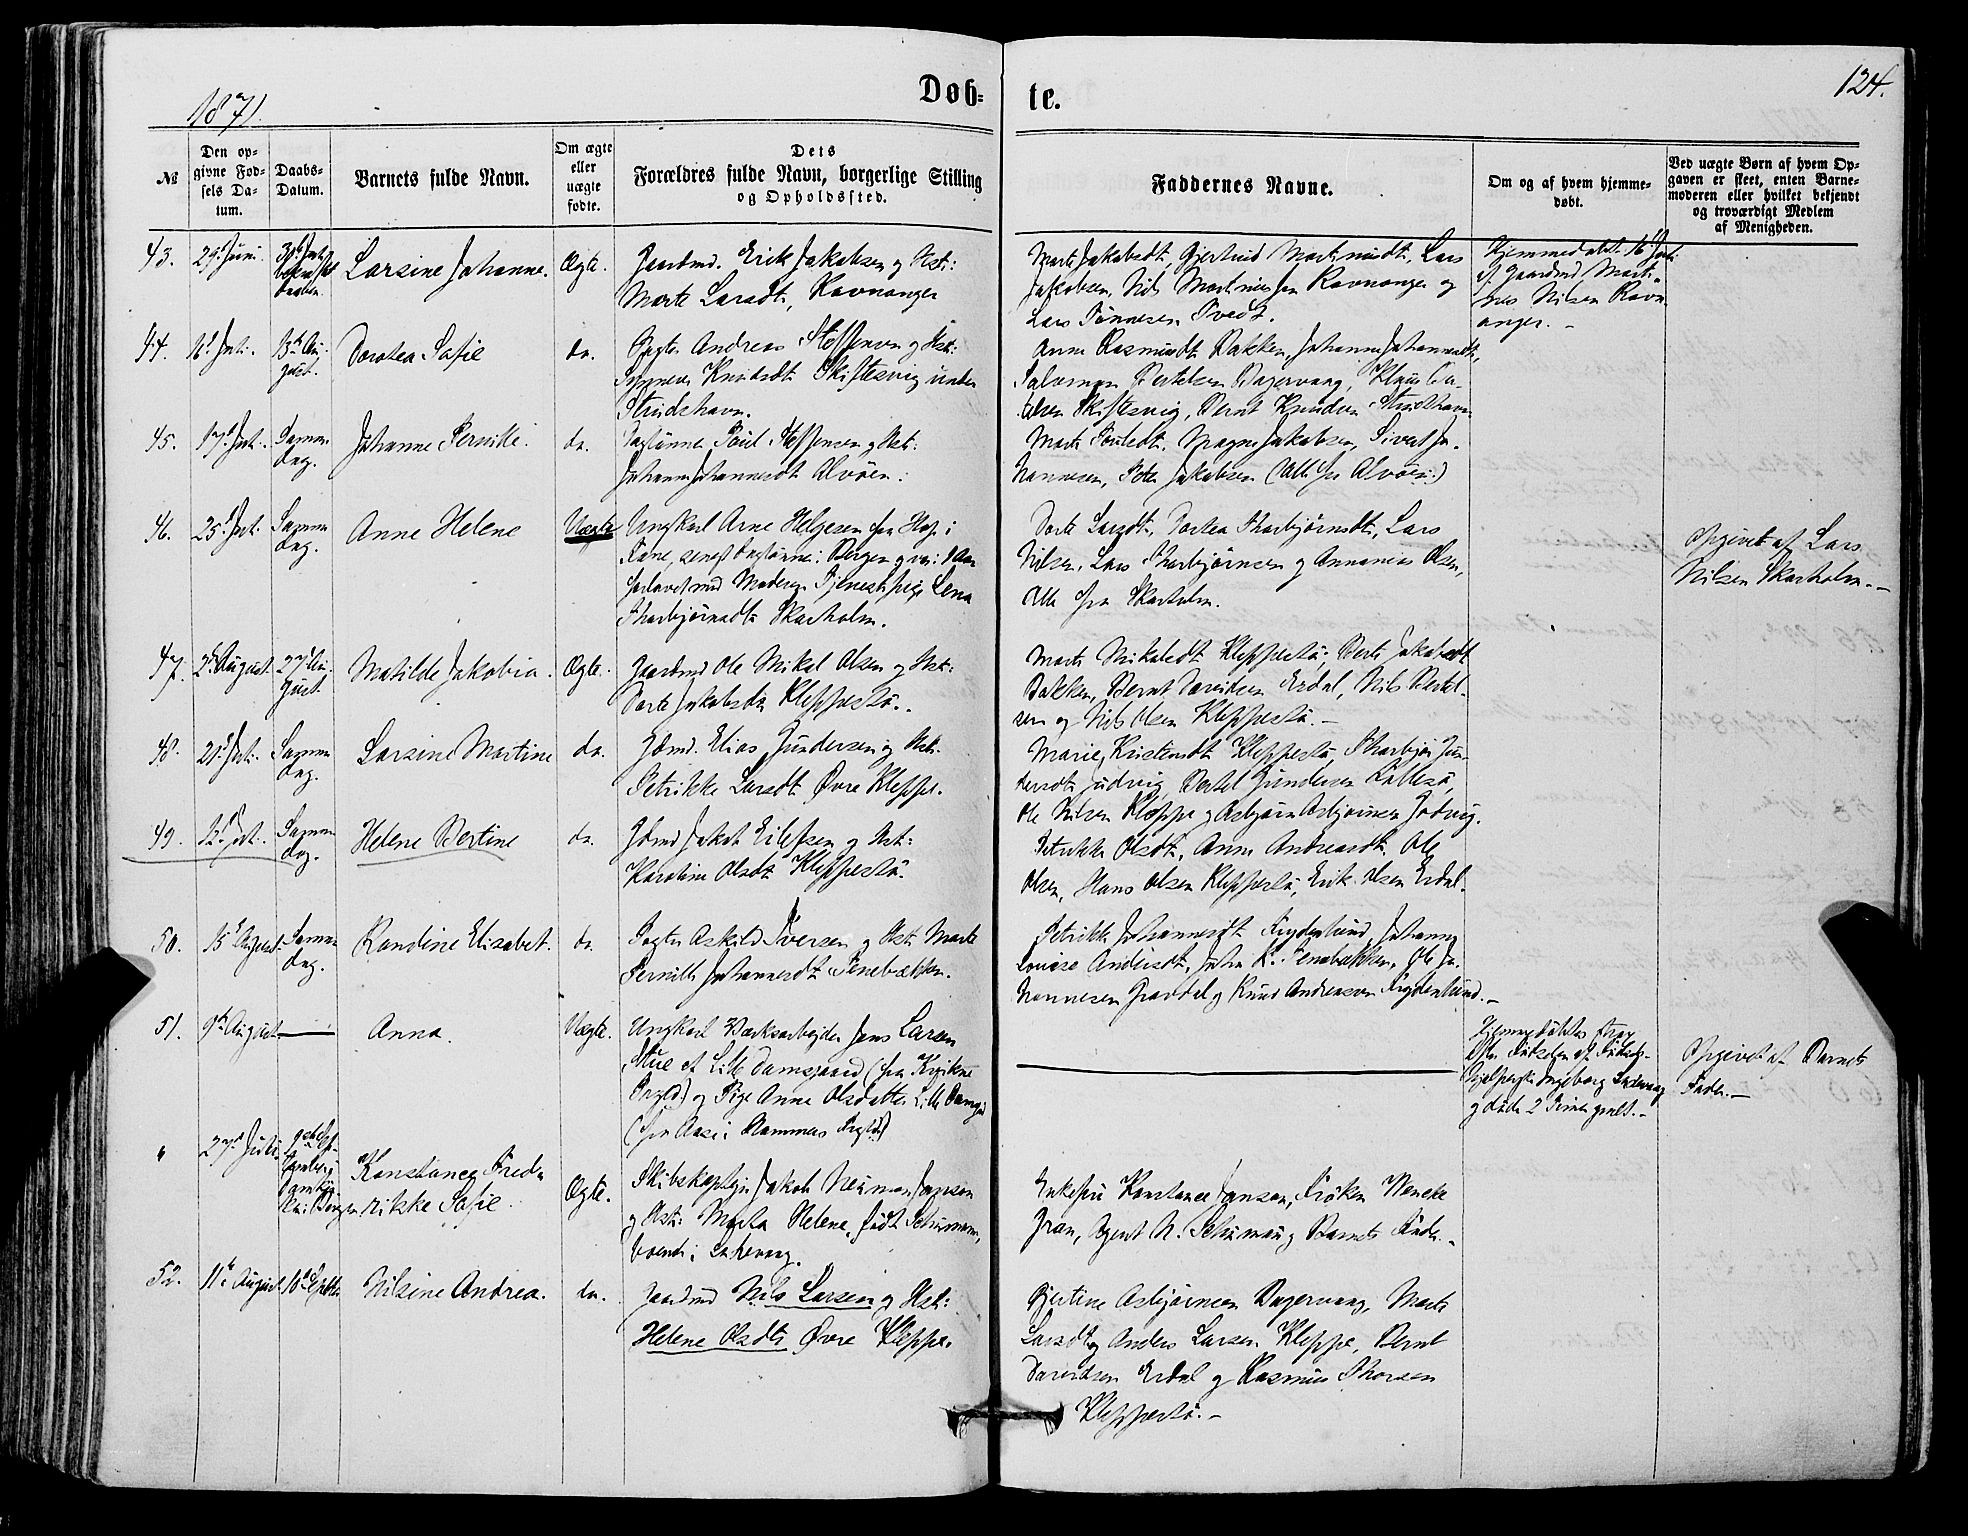 1871.
Døb-
te.
124.
№
Den op-
givne Fød-
sels Da-
tum.
Daabs-
Datum.
Barnets fulde Navn.
Om ægte
eller
uægte
fødte.
Dets
Forældres fulde Navn, borgerlige Stilling
og Opholdssted.
Faddernes Navne.
Om og af hvem hjemme-
døbt.
Ved uægte Børn af hvem Op-
gaven er skeet, enten Barne-
moderen eller hvilket bekjendt
og troværdigt Medlem
af Menigheden.
43.
29de Juni.
Larsine Johanne.
Ægte.
Gaardmd. Erik Jakobsen og Hst:
Marte Larsdt, Ravnanger
Marte Jakobsdt, Gjertrud Martinusdt, Lars
Jakobsen, Nils Martinussen Ravnanger og
Lars Tønnesen Tvedt.
Hjemmedøbt 16 Juli
af Gaardmd Marti-
nus Nilsen Ravn
anger. -
44.
13de Au-
gust.
Dorotea Sofie
do.
Andreas Steffensen og Hst:
Knudsdt Skiftesvig under
Strudshavn.
Anne Rasmusdt Bakken, Johanne Johannesdt,
Salomon Bertelsen Bagervaag, Klaus
Skiftesvig, Bernt Knudsen Strudshavn
45.
17de Juli.
Samme
Dag.
Johanne Pernille.
do.
Poul Steffensen og Hst:
Johanne Johannesdt Alvøen.
Marte Poulsdt, Magne Jakobsen, Sivert Jo-
hannesen, Peter Jakobsen (Alle fra Alvøen.)
46.
25de Juli.
Samme
Dag.
Anne Helene
Uægte
Ungkarl Arne Helgesen fra Hop i
Fane, Bergen
forlovet med Moderen Tjenestepige Lena
Thorbjørnsdt Skarholm.
Dorte Larsdt, Dortea Thorbjørnsdt, Lars
Nilsen, Lars Thorbjørnsen og Annanias Olsen,
Alle fra Skarholm.
Opgivet af Lars
Nilsen Skarholm. -
47.
2de August
27de Au-
gust.
Matilde Jakobia.
Ægte.
Gaardmd Ole Mikal Olsen og Hst:
Dorte Jakobsdt Kleppestø.
Marte Mikalsdt Kleppestø, Berte Jakobsdt
Bakken, Bernt Davidsen Erdal, Nils Bertel-
sen og Nils Olsen Kleppestø. -
48.
21de Juli.
Samme
Dag.
Larsine Martine
do.
Elias Gundersen og Hst.
Petrikke Larsdt Øvre Kleppe.
Marie Kristensdt Kleppestø, Thorbjør Gun-
dersdt Judvig, Bertel Gundersen
Ole Nilsen Kleppe og Asbjørn Asbjørnsen Jodvig.
49.
Samme
Dag.
Helene Bertine
do.
Jakob Eilefsen og Hst:
Karoline Olsdt Kleppestø.
Petrikke Olsdt, Anne Andreasdt, Ole
Olsen, Hans Olsen Kleppestø, Erik Olsen Erdal.
50.
15 August
Samme
Dag.
Randine Elisabet.
do.
Askild Iversen og Hst: Marte
Pernille Johannesdt Stenebækken.
Petrikke Johannesdt Frydenlund, Johanne
Lovise Andersdt, John K. Stenebækken, Ole Jo-
hannesen Gravdal og Knud Andreassen Frydenlund. -
51.
9de August
Anna.
Uægte.
Ungkarl Værksarbeider Jens Larsen
Stue af Lille Damsgaard (fra Kvikne
Prgld) og Pige Anne Olsdatter Lille Damsgd
(fra Aase i Hammers Prgld)
Hjemmedøbtes strax
efter Fødselen af Fødsels-
hjælperske Ingeborg
og døde 2 Timer gmlt. -
Opgivet af Barnets
Fader. -
"
27de Juli.
Konstance Fred-
rikke Sofie.
Ægte.
Skibskaptejn Jakob Neuman Janson
og Hst: Marta Helene, født Schuman,
boende i Laxevaag.
Enkefru Konstance Janson, Frøken Wencke
Gran, Agent N. Schuman og Barnets Fader. -
52.
11te August
10de Septbr
Nilsine Andrea.
do.
Gaardmd Nils Larsen og Hst:
Helene Olsdt Øvre Kleppe.
Gjertine Asbjørnsen Bagervaag, Marte
Larsdt og Anders Larsen Kleppe, Bernt
Davidsen Erdal og Rasmus Thorsen
Kleppestø. -